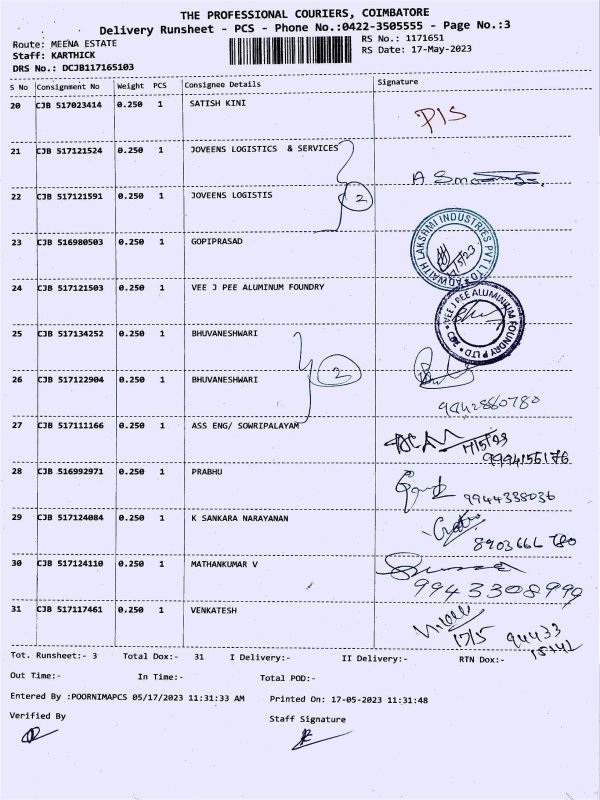 THE PROFESSIONAL COURIERS, COIMBATORE
Delivery Runsheet - PCS - Phone No.:0422-3505555 - Page No.:3
Route: MEENA ESTATE
RS No.: 1171651
Staff: KARTHICK
RS Date: 17-May-2023
DRS No.: DCJB117165103
S No Consignment No Weight PCS Consignee Details Signature
20 CJB 517023414 0.250 1 SATISH KINI P1S
21 CJB 517121524 0.250 1 JOVEENS LOGISTICS & SERVICES
22 CJB 517121591 0.250 1 JOVEENS LOGISTIS 2
23 CJB 516980503 0.250 1 GOPIPRASAD
ADWAITH LAKSHMI INDUSTRIES PVT LTD
24 CJB 517121503 0.250 1 VEE J PEE ALUMINUM FOUNDRY
VEE J PEE ALUMINIUM FOUNDRY P LTD
25 CJB 517134252 0.250 1 BHUVANESHWARI
26 CJB 517122904 0.250 1 BHUVANESHWARI 2
9942880780
27 CJB 517111166 0.250 1 ASS ENG/ SOWRIPALAYAM
17/5/23
9994156176
28 CJB 516992971 0.250 1 PRABHU
9944388036
29 CJB 517124084 0.250 1 K SANKARA NARAYANAN
8903666780
30 CJB 517124110 0.250 1 MATHANKUMAR V
9943308999
31 CJB 517117461 0.250 1 VENKATESH
17/5 94433
15442
Tot. Runsheet:- 3 Total Dox:- 31 I Delivery:- II Delivery:- RTN Dox:-
Out Time:- In Time:- Total POD:-
Entered By :POORNIMAPCS 05/17/2023 11:31:33 AM Printed On: 17-05-2023 11:31:48
Verified By Staff Signature